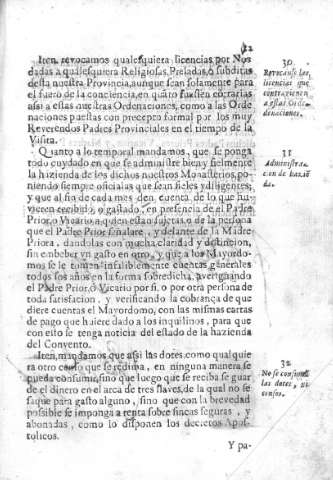 12
Iten, revocamos qualesquiera licencias por Nos
dadas a qualesquiera Religiosas, Preladas, ò subditas
desta nuestra Provincia, aunque sean solamente para
el fuero de la conciencia, en quãto fuessen cõtrarias
assi a estas nuestras Ordenaciones, como a las Orde
naciones puestas con precepto formal por los muy
Reverendos Padres Provinciales en el tiempo de la
Visita.
30
Revocanse las
licencias que
contravienen
a estas Orde-
denaciones.
Quanto a lo temporal mandamos, que se ponga
todo cuydado en que se administre bien, y fielmente
la hazienda de los dichos nuestros Monasterios, po-
niendo siempre oficialas que sean fieles y diligentes;
y que al fin de cada mes den cuenta de lo que hu-
vieren recibido, o gastado, en presencia de el Padre
Prior, o Vicario, a quien estan sujetas, o de la persona
que el Padre Prior señalare, y delante de la Madre
Priora, dandolas con mucha claridad y distincion,
sin embeber vn gasto en otro, y que a los Mayordo-
mos se le tomen infaliblemente cuentas generales
todos los años en la forma sobredicha, averiguando
el Padre Prior, ò Vicario por si, o por otra persona de
toda satisfacion, y verificando la cobrança de que
diere cuentas el Mayordomo, con las mismas cartas
de pago que huiere dado a los inquilinos, para que
con esto se tenga noticia del estado de la hazienda
del Convento.
31
Administra-
cion de hazien
da.
Iten, mandamos que assi las dotes como qual quie
ra otro censo que se redima, en ninguna manera se
pueda consumir, sino que luego que se reciba se guar
de el dinero en el arca de tres llaves, de la qual no se
saque para gasto alguno, sino que con la brevedad
possible se imponga a renta sobre fincas seguras, y
abonadas, como lo disponen los decretos Apos-
tolicos.
32
No se consuman
las dotes, ni
censos.
Y pa-